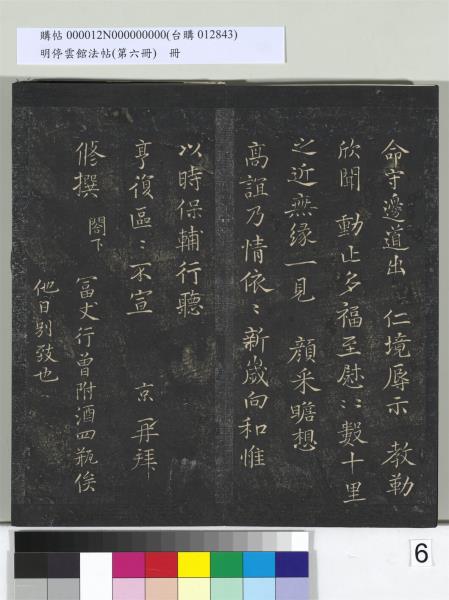 購帖 000012N000000000(台購 012843)
明停雲館法帖(第六冊) 冊
命守邊道出 仁境辱示 教勒
欣聞 動止多福至慰〻數十里
之近無緣一見 顏采瞻想
高誼乃情依〻新歲向和惟
以時保輔行聽
亨復區〻不宣 京 再拜
修撰 閤下
冨丈行曾附酒四瓶俟
他日別致也
6